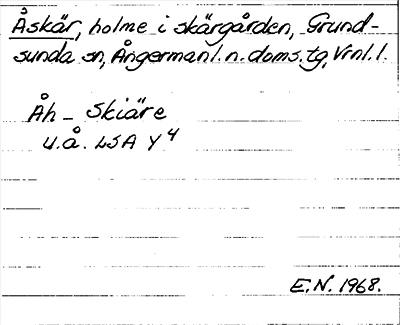 Åskär, holme i skärgården, Grund-
sunda sn, Ångermanl. n. doms. tg, Vrnl. l.
Åh - Skiäre
u.å. LSA Y4
E.N. 1968.